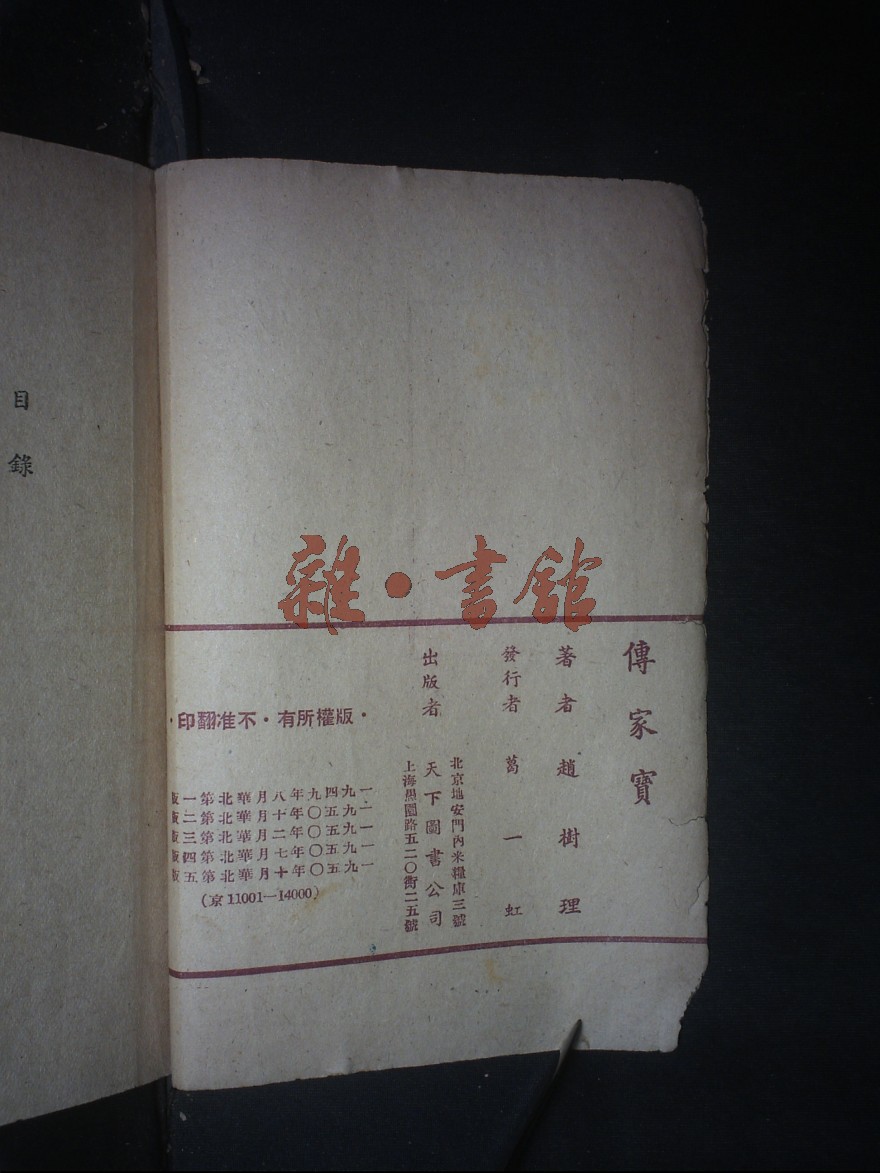 雜·書館
傳家寶
著者 趙樹理
發行者 葛一虹
北京地安門內米糧庫三號
出版者 天下圖書公司
上海愚園路五二〇衖二五號
·版權所有·不准翻印·
一九四九年八月華北第一版
一九五〇年十月華北第二版
一九五〇年二月華北第三版
一九五〇年七月華北第四版
一九五〇年十月華北第五版
(京11001—14000)
目錄